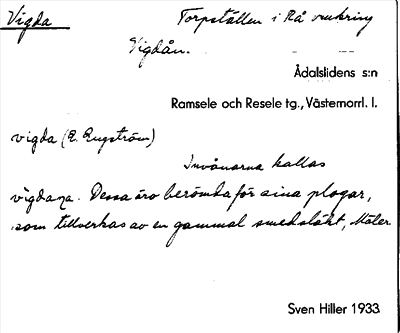 Vigda Torpställen i Rå omkring
Vigdån.
Ådalslidens s:n
Ramsele och Resele tg., Västernorrl. l.
vigda (E. Engström)
Invånarna kallas
vigdana. Dessa äro berömda för sina plogar,
som tillverkas av en gammal smedsläkt, Mäler
Sven Hiller 1933